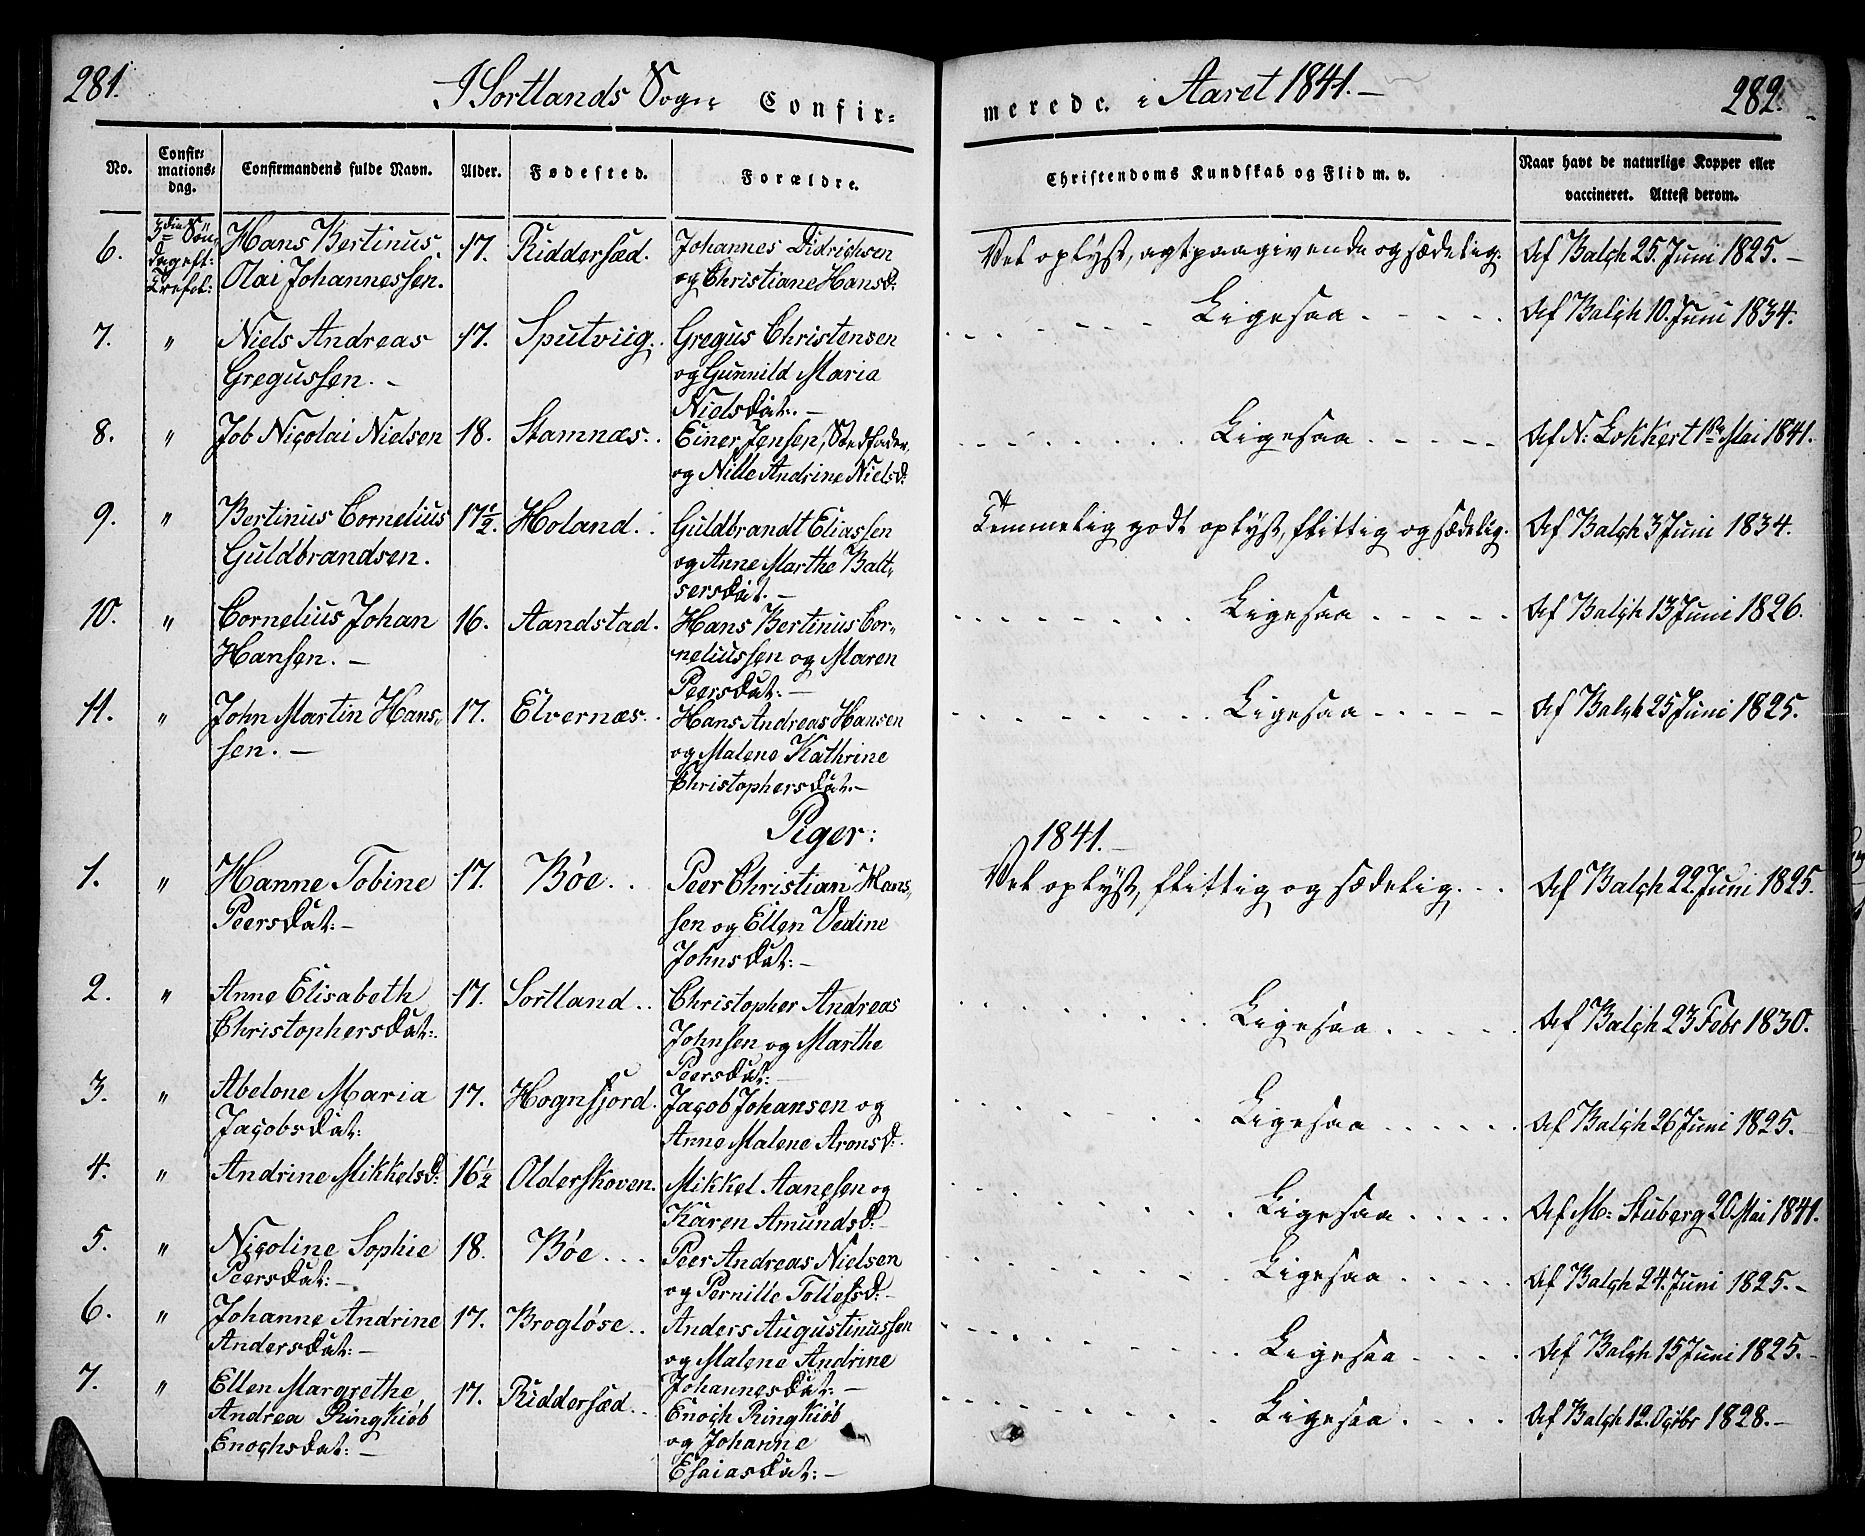 281.
I Sortlands Sogn Confir-
merede. i Aaret 1841.-
282.
No.
Confir-
mations-
dag.
Confirmandens fulde Navn.
Alder.
Fødested.
Forældre.
Christendoms Kundskab og Flid m. v.
Naar havt de naturlige Kopper eller
vaccineret. Attest derom.
6.
3die Søn-
dag eft:
Trefol:
Hans Bertinus
Olai Johannessen.
17.
Riddersæd.
Johannes Didrichsen
og Christiane Hansd:
Vel oplyst, agtpaagivende og sædelig.
Af Balch 25. Juni 1825.-
7.
"
Niels Andreas
Gregussen.-
17.
Sputviig.
Gregus Christensen
og Gunnild Maria
Nielsdat.-
Ligesaa
Af Balch 10. Juni 1834.
8.
"
Job Nicolai Nielsen
18.
Stamnæs.
Einer Jensen, Stedfader,
og Nille Andrine Nielsd:
Ligesaa
Af N: Lokkert Mai 1841.
9.
"
Bertinus Cornelius
Guldbrandsen.
17½.
Holand.
Guldbrandt Eliassen
og Anne Marthe Balt,
sersdat.-
Temmelig godt oplyst, flittig og sædelig.
Af Balch 3 Juni 1834.
10.
"
Cornelius Johan
Hansen.-
16.
Aandstad.
Hans Bertinus Cor,
neliussen og Maren
Peersdat:-
Ligesaa
Af Balch 13 Juni 1826.
11.
"
John Martin Hans,
sen.-
17.
Elvernæs.
Hans Andreas Hansen
og Malene Kathrine
Christophersdat.-
Ligesaa
Af Balch 25 Juni 1825.
Piger:
1841.
1.
"
Hanne Tobine
Peersdat:-
17.
Bøe..
Peer Christian Hans,
sen og Ellen Vedine
Johnsdat:-
Vel oplyst, flittig og sædelig...
Af Balch 22. Juni 1825.
2.
"
Anne Elisabeth
Christophersdat:
17.
Sortland..
Christopher Andreas
Johnsen og Marthe
Peersdat:
Ligesaa
Af Balch 23 Febr 1830.
3.
"
Abelone Maria
Jacobsdat:
17.
Hognfjord.
Jacob Johansen og
Anne Malene Aronsd:
Ligesaa
Af Balch 26 Juni 1825.
4.
"
Andrine Mikkelsd:
16½
Olderskoven.
Mikkel Aanesen og
Karen Amundsd:-
Ligesaa
Af M: Stuberg 20 Mai 1841.
5.
"
Nicoline Sophie
Peersdat:-
18.
Bøe...
Peer Andreas Nielsen
og Pernille Tollefsd:-
Ligesaa
Af Balch 24. Juni 1825.-
6.
"
Johanne Andrine
Andersdat:-
17.
Brogløse..
Anders Augustinussen
og Malene Andrine
Johannesdat:-
Ligesaa
Af Balch 15 Juni 1825.-
7.
"
Ellen Margrethe
Andrea Ringkiöb
Enochsdat:-
17.
Riddersæd..
Enoch Ringkiöb
og Johanne
Esaiasdat:-
Ligesaa
Af Balch 12. Octbr 1828.-